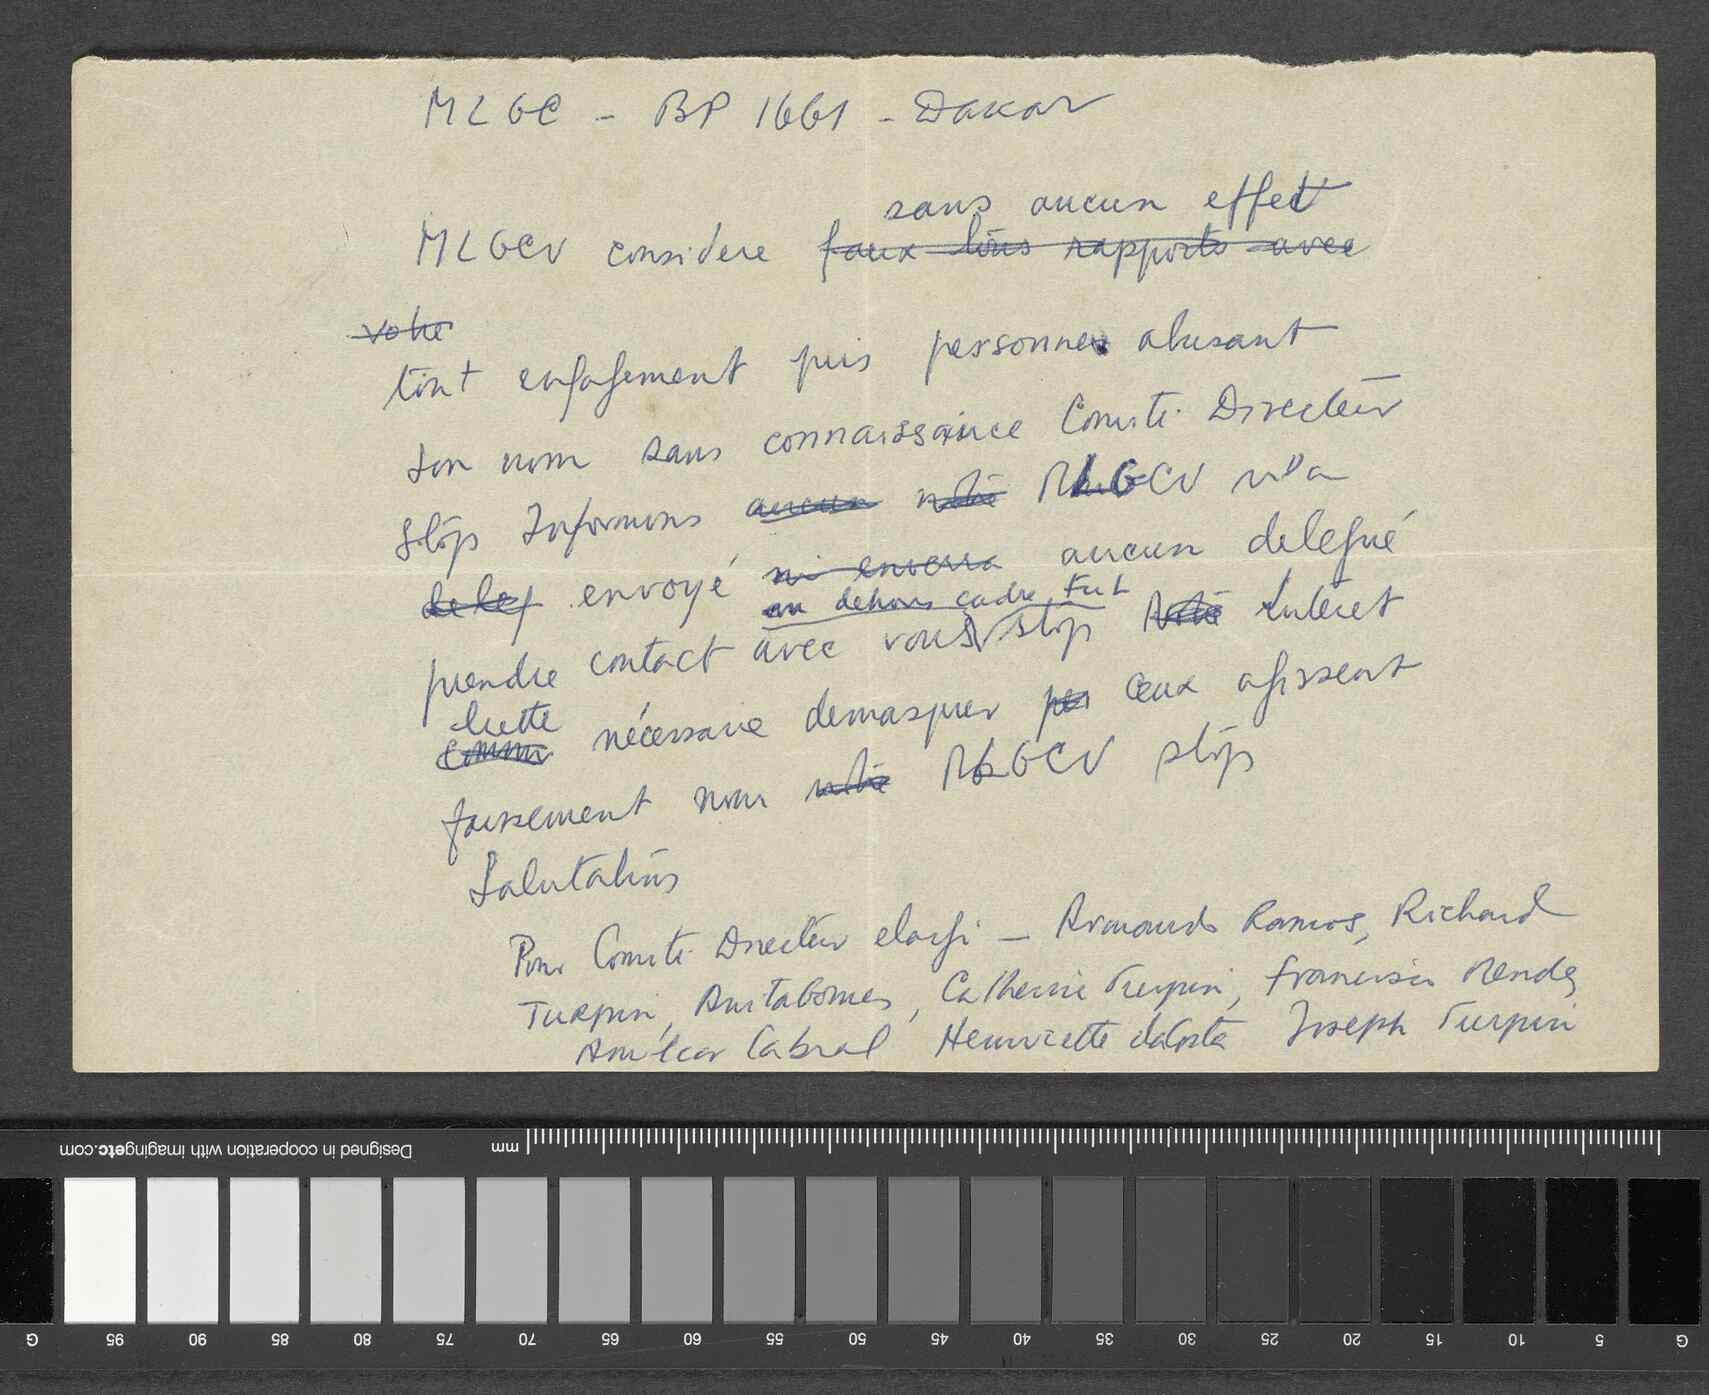 MLGC - BP 1661 - Dakar
sans aucun effet
MLGCV considere faux tous rapports avec
votre
tout engagement pris personnes abusant
son nom sans connaissance Comité Directeur
stop Informons aucun notre MLGCV n'a
deleg envoyé ni enverra aucun delegué
en dehors cadre FUL
prendre contact avec vous stop Notre Interet
lutte
comm nécessaire demasquer per ceux agissent
faussement nom notre MLGCV stop
Salutations
Pour Comité Directeur elargi - Armando Ramos, Richard
Turpin, Anita Gomes, Catherine Turpin, Francisco Mendes
Amílcar Cabral Henriette da Costa Joseph Turpin
Designed in cooperation with imagingetc.com
mm
G 95 90 85 80 75 70 65 60 55 50 45 40 35 30 25 20 15 10 5 G